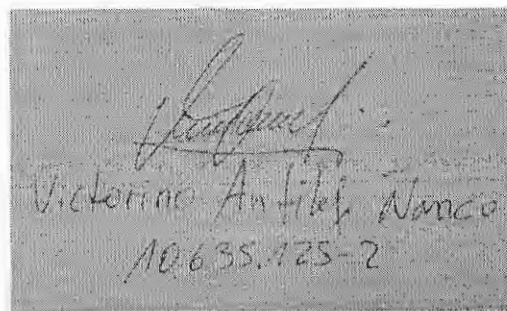 Victorino Antilef Nanco
10.635.125-2